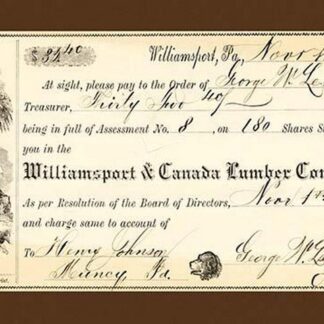 $32 40 Williamsport, Pa, Novr
At sight, please pay to the Order of George W.
Treasurer, Thirty Two 40/
being in full of Assessment No. 8, on 180 Shares S
you in the
Williamsport & Canada Lumber Con
As per Resolution of the Board of Directors, Novr 1st
and charge same to account of
To Henry Johnson George W.
Muncy, Pa.